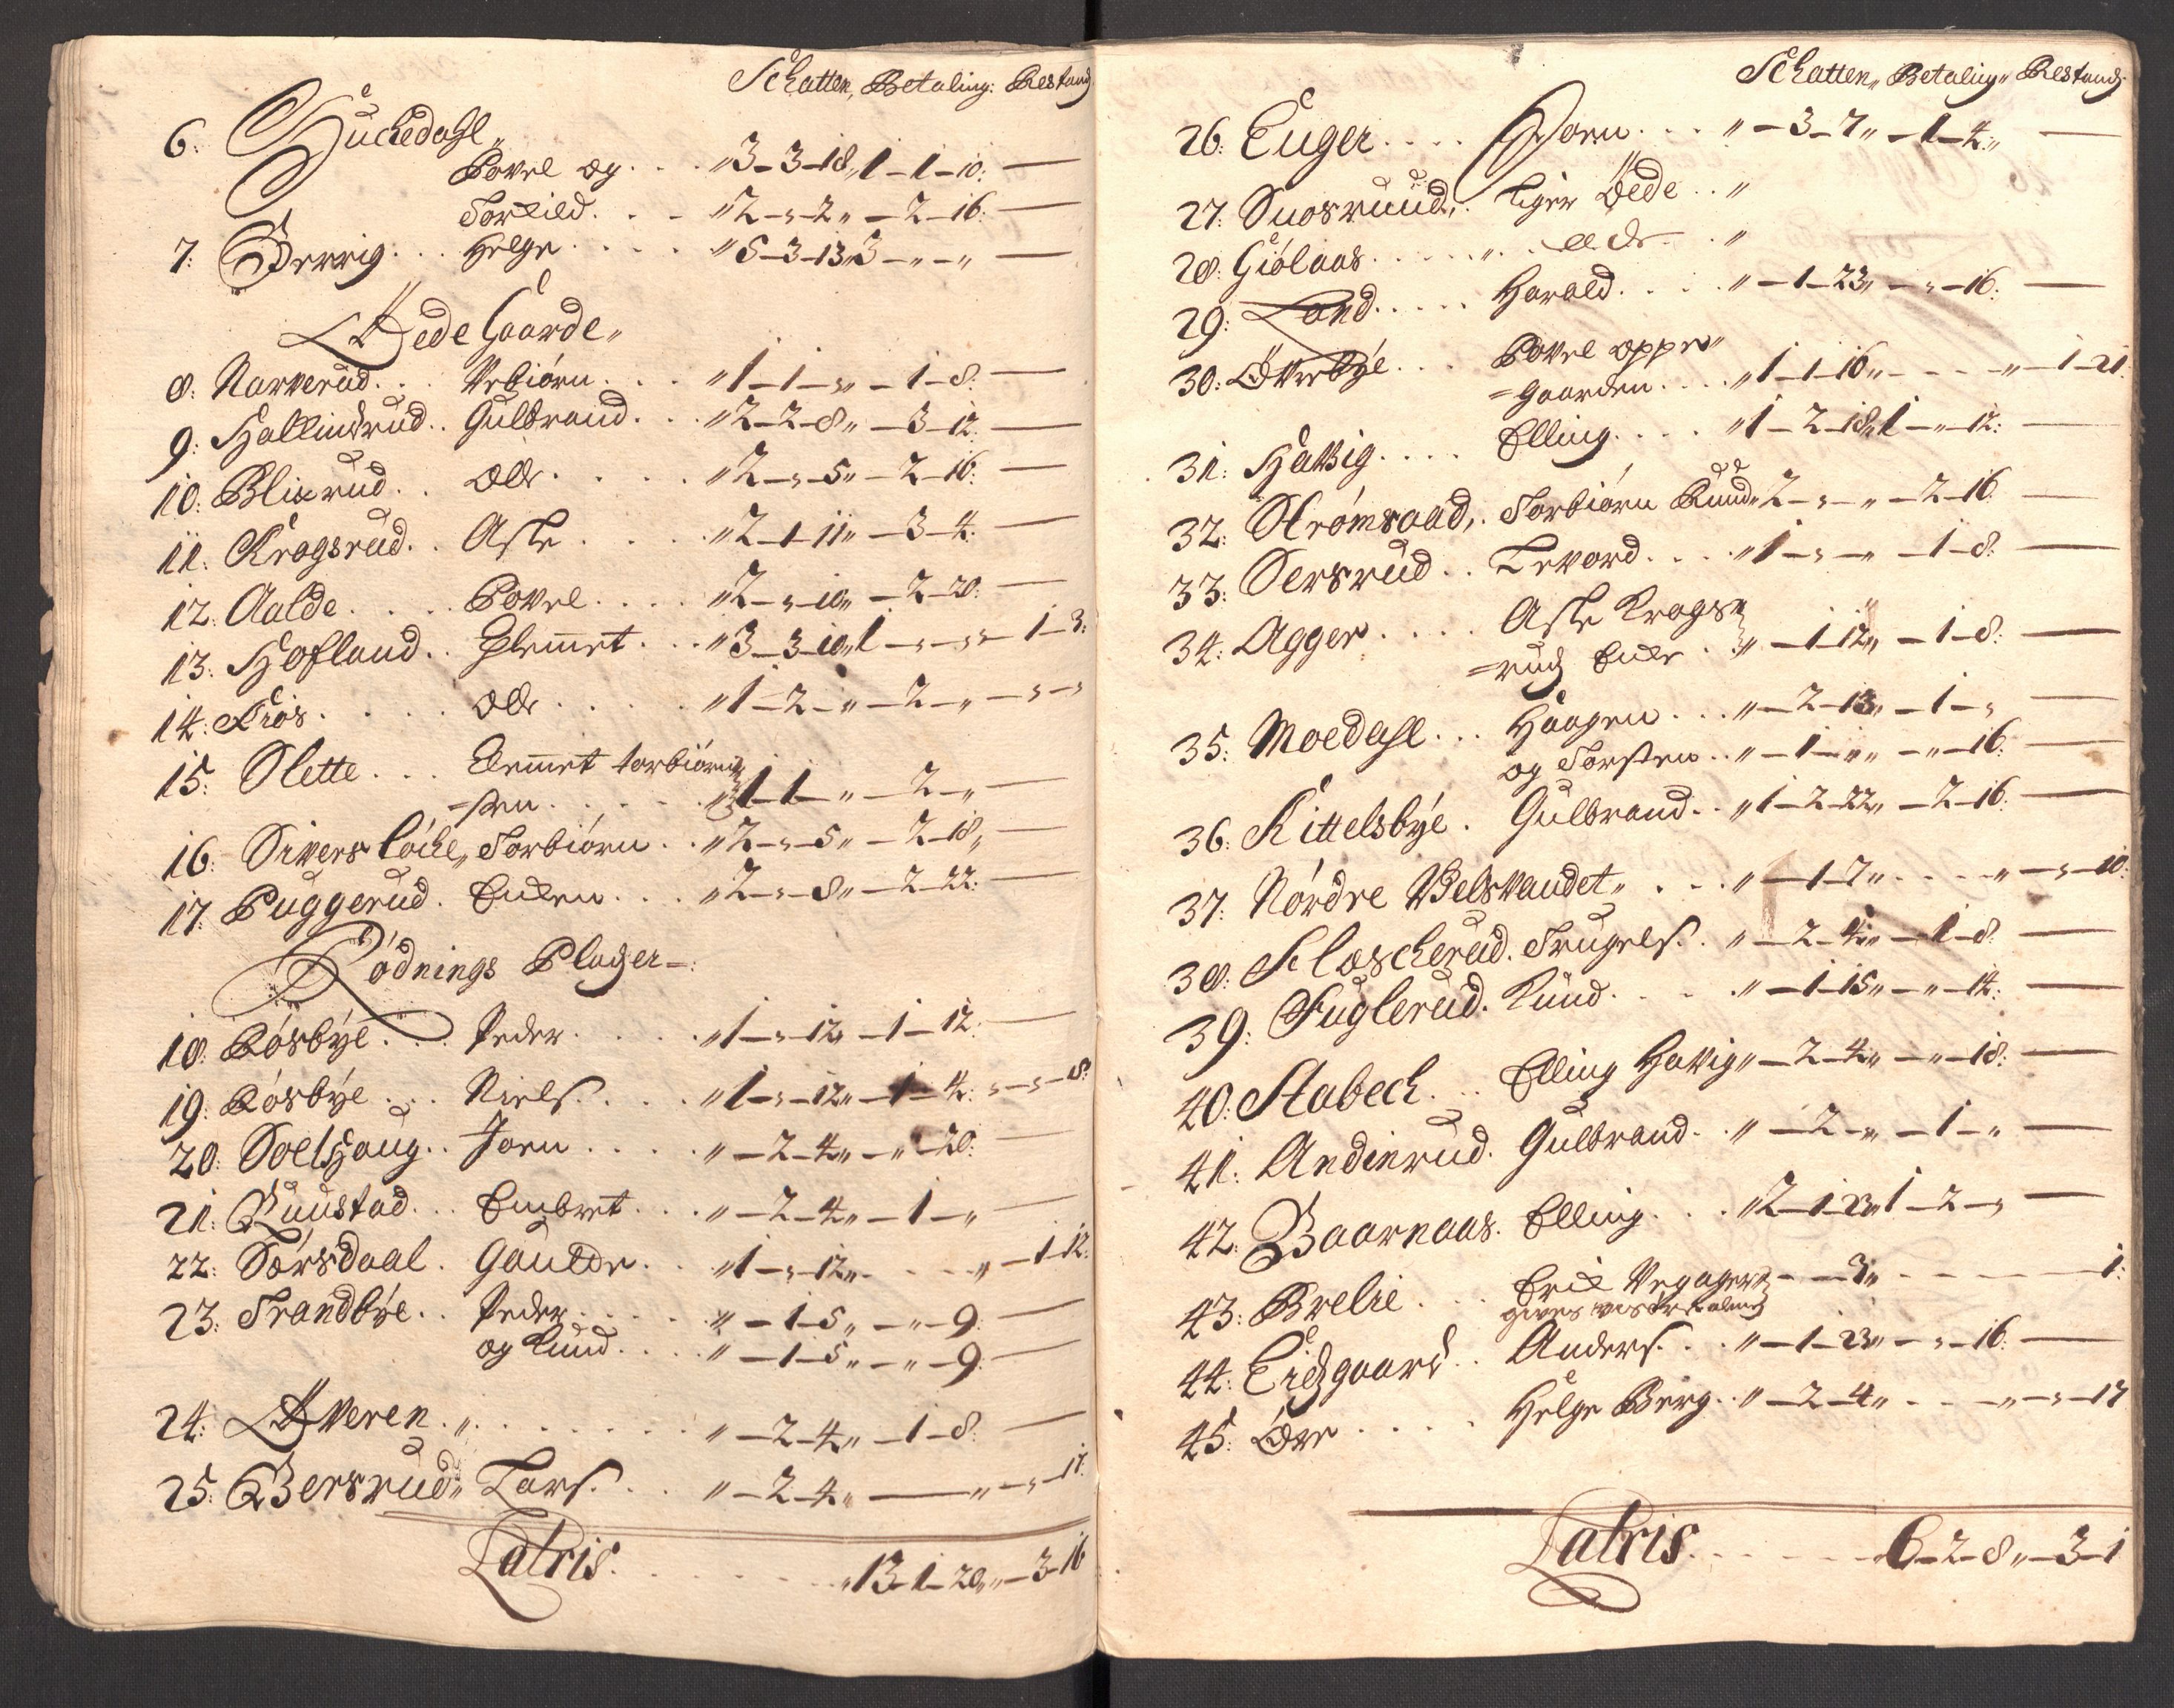 Schatten, Betaling: Restands
6: Huchedahl„
Povel og . . . „3-3-18„1-1-10: —
Torkild. . - „2-„-2„-2-16: —
7: Berrig. . . Helge . . . . „5-3-13„3-„-„ —
Øede Gaarde„
8: Narverud. . . Vebiørn. . . „1-1-„„-1-8: —
9: Hallindrud. . Gulbrand. . . „2-2-8„-3-12: —
10: Blixrud. . Olle. . . . . „2-„-5„-2-16: —
11: Kragsrud. . Aste . . . . „2-1-11„-3-4: —
12: Aalde. . . . Povel. . . . „2-„-10„-2-20: —
13: Hofland. . Clemmet. . . „3-3-10„1-„-„„-1-3:
14: Kiös. . . . . Olle . . . . . „1-2-„-2-„-„-„
15: Slette. . . Clemmet torbiørn„
=sen. . . . . „1-1-„-2-„ —
16: Sivers löche„ Torbiörn . . „2-„-5„-2-18„ —
17: Puggerud. Encken. . . „2-„-8„-2-22: —
Rödnings Plazer-:
18: Röösbÿe. . . Peder. . . . . „1-„-12„-1-12: —
19: Röösbÿe. . . Niels. . . . . „1-„-12„-1-4: „-„-8:
20: Soelhaug. . Jorn . . . . „-2-4„-„-20: —
21: Ruustad. . . Embret. . . „-2-4„-1-„ —
22: Sörsdaal. Gaulde. . „1-„-12„. . . . „-1-12:
23: Trandbÿe. . Peder. . . . . „-1-5„-„-9: —
og Knud. . . . „-1-5„-„-9: —
24: Øveren. „. . . . . . . . „-2-4„-1-8: —
25: Bersrud„ Lars. . . „-2-4„ — „-„-17:
Latris. . . . . . . . „13-1-20„„-3-16
Schatten„ Betaling„ Restands
26: Enger. . . . Jorn. . . „-3-7„-1-4„ —
27: Snosruud„. ligger Øede . . „
28: Giölaas. . . . . „. . ell. dr . . „
29: Land. . . . . Harald. . . . „-1-23„-„-16: —
30: Øverbÿe. . . Povel oppe„
=gaarden. . . . „1-1-16„-. . . . „-1-21:
31: Hakvig. . . . Elling. . . . „1-2-18„1-„-12: —
32: Strömsaad„. Torbiörn Ruud„ 2-„-„-2-16. —
33: Sersrud. . Levord. . . . „1-„-„-1-8: —
34: Agger. . . . . Aste Krags„
=ruds Encke . . „-1-12„-1-8: —
35: Moedahl. . . Haagen. . . „-2-13„-1-„ —
og Torsten. . „-1-„„-„-16. —
36: Kittelsbÿe. Gulbrand. . „1-2-22„-2-16. —
37: Nördre Velsvandet„. . . . „-1-7„. . . . „-„-10:
38: Sloscherud. Truges. . „-2-4„-1-8. —
39: Fuglerud. Knud. . . . „-1-15„-„-14: —
40: Stabech. . . Elling Hakvig„-2-4„-„-18: —
41: Andinrud. Gulbrand. . „-2-„-1-„ —
42: Baarnaas. Elling. . . „2-1-23„1-2-„ —
43: Brelie . . . Erik Vegager„ - -3„- - - - - 1:
44: Eidsgaard. . Anders. . . „-1-23„-„-16: —
45: Öre . . . . Helge Berg. . „-2-4„ - - - „-„-17
Latris. . . . . . . 6-2-8„-3-1